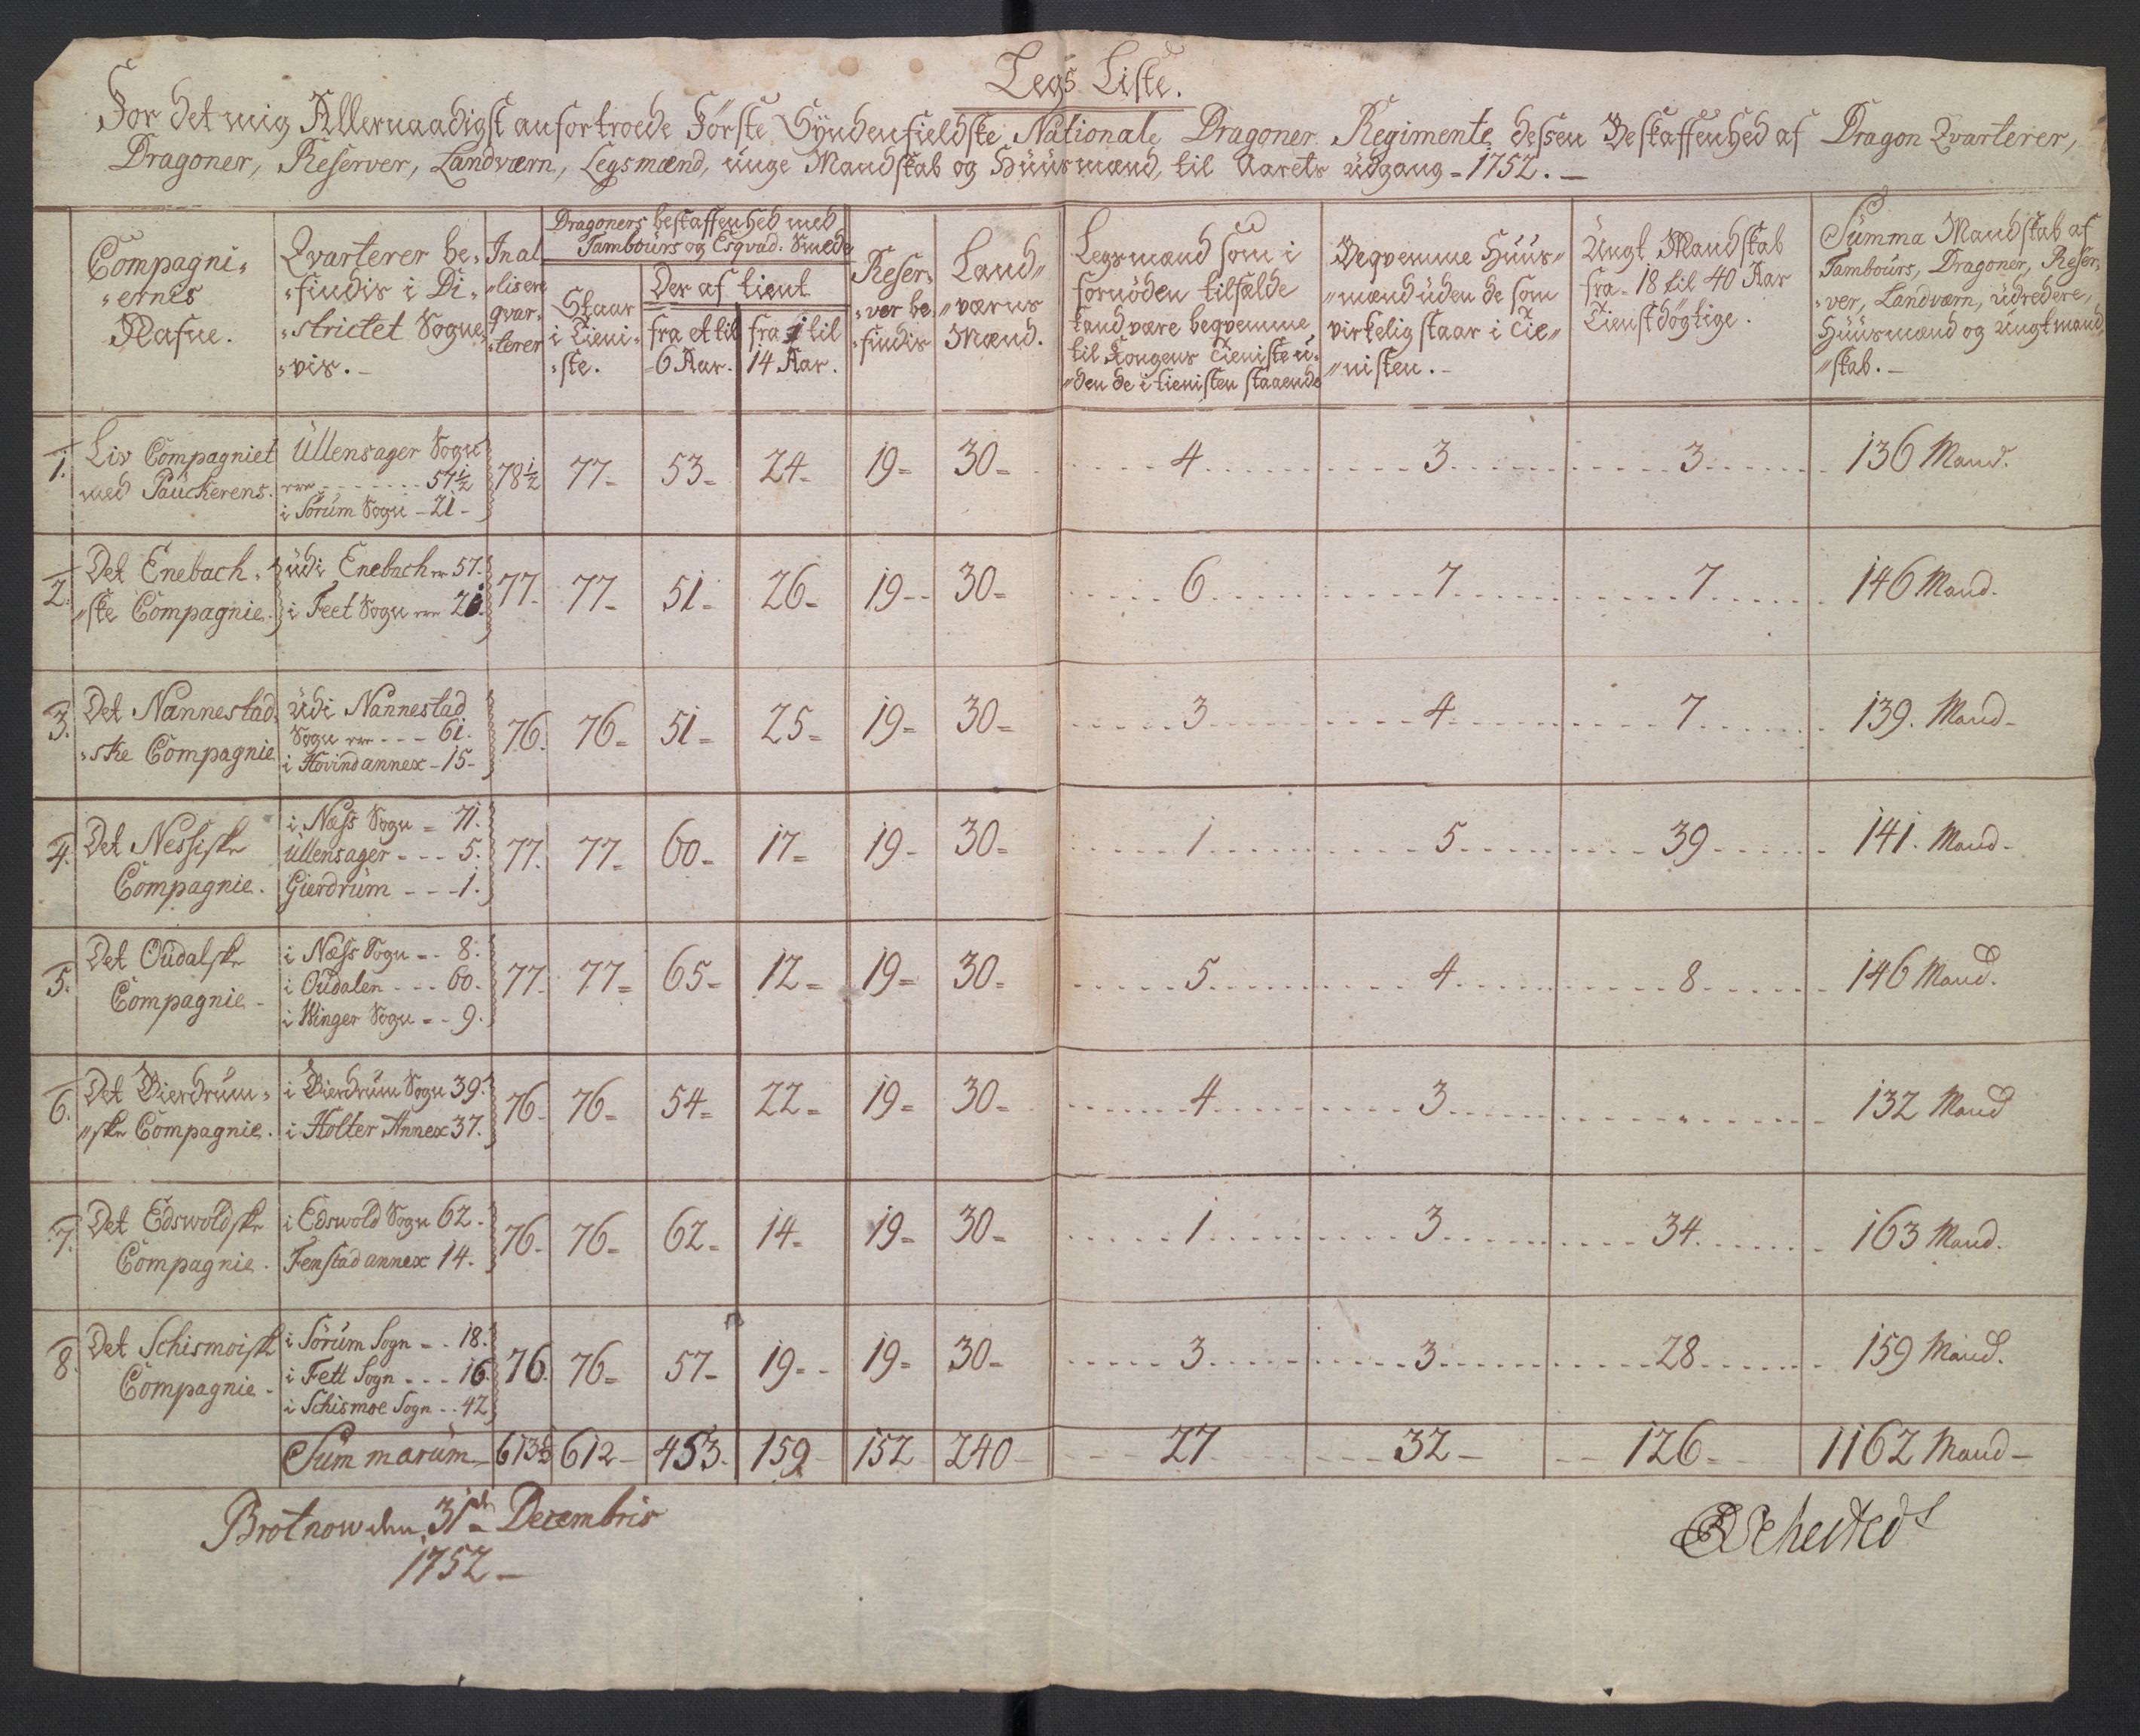 Legs Liste.
For det mig Allernaadigst anfortroede Förste Syndenfieldske Nationale Dragoner Regimente, dessen Beskaffenhed af Dragon Qvarterer,
Dragoner, Reserver, Landværn, Legsmænd, unge Mandskab og Huusmænd, til Aarets udgang - 1752. -
Compagni-
-ernes
Nafne.
Qvarterer be-
-findis i Di-
-strictet Sogne-
-vis. -
In al
-lis ere
qvar-
-terer
Dragoners beskaffenhed med
Tambours og Esqvad: Smede
Staar
i Tieni-
-ste.
Der af tient
fra et til
6 Aar.
fra 1 til
14 Aar.
Reser-
-ver be-
-findis
Land-
-værns
Mænd.
Legsmænd som i
fornöden tilfælde
kand være beqvemme
til Kongens Tieniste u-
-den de i tienisten staaende
Beqvemme Huus-
-mænd uden de som
virkelig staar i Tie-
-nisten. -
Ungt Mandskab
fra - 18 til 40 Aar
Tienstdögtige.
Summa Mandskab af
Tambours, Dragoner, Reser-
-ver, Landværn, udredere,
Huusmænd og Ungt mand-
-skab. -
1. Liv Compagniet Ullensager Sogn
med Pauckerens. ere - - - 57½ 78½ 77 - 53 - 24 - 19 - 30 - 4 3 3 136 Mand.
i Sørum Sogn - 21 -
2. Det Enebach- udi Enebach ere 57. 77. 77 - 51 - 26 - 19 - - 30 - 6 7 7 146 Mand.
-ske Compagnie. i Feet Sogn ere 20.
3. Det Nannestad- udi Nannestad
-ske Compagnie Sogn ere - - - 61. 76. 76 - 51 - 25 - 19 - 30 - 3 4 7 139. Mand -
i Hovind annex - 15 -
4. Det Nessiske i Næss Sogn - 71.
Compagnie. Ullensager - - - 5. 77. 77 - 60 - 17 - 19 - 30 - 1 5 39 141. Mand -
Gierdrum - - - 1.
5. Det Oudalske i Næss Sogn - - 8.
Compagnie - i Oudalen - - - 60. 77. 77 - 65 - 12 - 19 - 30 - 5 4 8 146 Mand.
i Winger Sogn - - 9.
6. Det Gierdrum- i Gierdrum Sogn 39. 76. 76 - 54 - 22 - 19 - 30 - 4 3 . 132 Mand
-ske Compagnie. i Holter Annex 37.
7. Det Edswoldske i Edswold Sogn 62. 76. 76 - 62 - 14 - 19 - 30 - 1 3 34 163 Mand.
Compagnie. Fenstad annex 14.
8. Det Schismoiske i Sørum Sogn - - 18.
Compagnie - i Fett Sogn - - - 16 76. 76 - 57 - 19 - - 19 - 30 - 3 3 28 159 Mand.
i Schismoe Sogn - - 42
Summarum - 613½ 612 - 453 - 159 - 152 240 - 27 32 - 126 - 1162 Mand -
Brotnow den 31te Decembris
1752 -
Schested